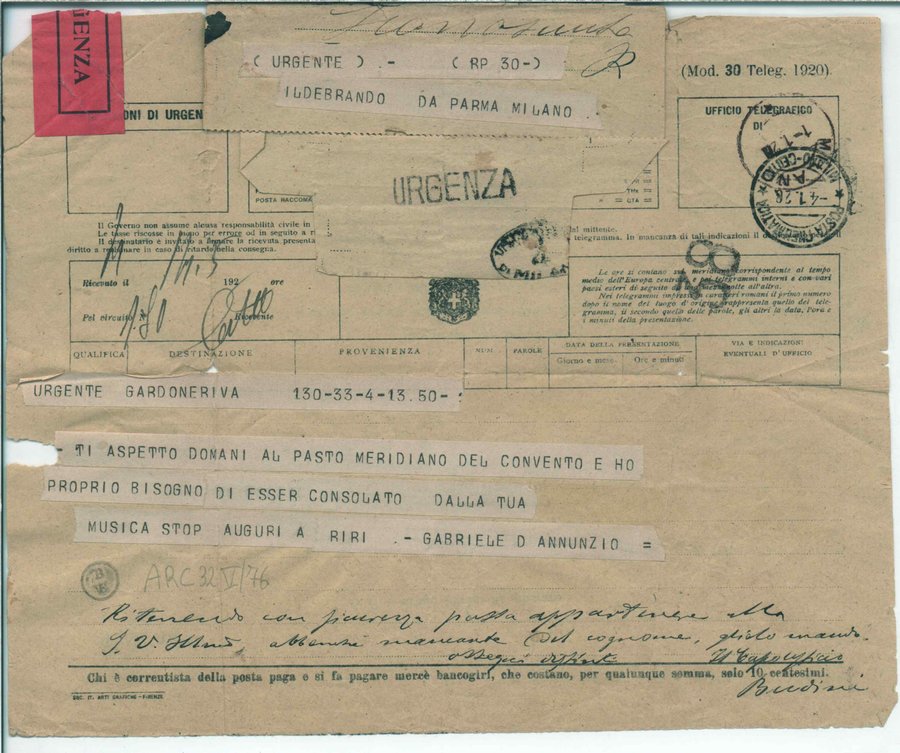 GENZA
(URGENTE) .- (RP 30-)
ILDEBRANDO DA PARMA MILANO
(Mod. 30 Teleg. 1920)
ONI DI URGEN
UFFICIO TELEGRAFICO
DI
MILANO-CENTRO
-4.1.26
POSTA PNEUMATICA
URGENZA
POSTA RACCOMA
Il Governo non assume alcuna responsabilità civile in
Le tasse riscosse in meno per errore od in seguito a ri
Il destinatario è invitato a firmare la ricevuta presenta
diritto a reclamare in caso di ritardo nella consegna.
dal mittente.
telegramma. In mancanza di tali indicazioni il
Ricevuto il 192 ore
Pel circuito N. Ricevente
Le ore si contano sul meridiano corrispondente al tempo
medio dell'Europa centrale per i telegrammi interni e con vari
paesi esteri di seguito da una mezzanotte all'altra.
Nei telegrammi impressi in caratteri romani il primo numero
dopo il nome del luogo d'origine rappresenta quello del tele-
gramma, il secondo quello delle parole, gli altri la data, l'ora e
i minuti della presentazione.
QUALIFICA DESTINAZIONE PROVENIENZA NUM PAROLE DATA DELLA PRESENTAZIONE VIA E INDICAZIONI
Giorno e mese. Ore e minuti EVENTUALI D'UFFICIO
URGENTE GARDONERIVA 130-33-4-13.50-
- TI ASPETTO DOMANI AL PASTO MERIDIANO DEL CONVENTO E HO
PROPRIO BISOGNO DI ESSER CONSOLATO DALLA TUA
MUSICA STOP AUGURI A RIRI .- GABRIELE D ANNUNZIO =
ARC 32 V/76
Ritenendo con sicurezza possa appartenere alla
S. V. Ill abbenchè mancante del cognome, glielo mando.
ossequi distinti Il Capoufficio
Chi è correntista della posta paga e si fa pagare mercè bancogiri, che costano, per qualunque somma, solo 10 centesimi.
SOC. IT. ARTI GRAFICHE - FIRENZE